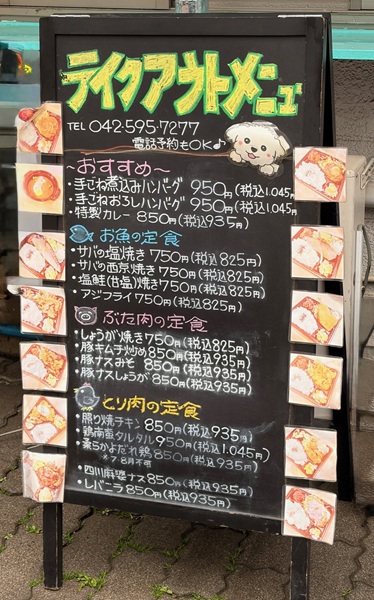 テイクアウトメニュー
TEL 042-595-7277
電話予約もOK♪
〜おすすめ〜
・手ごね煮込みハンバーグ 950円(税込1.045円
・手ごねおろしハンバーグ 950円(税込1.045円
・特製カレー 850円(税込935円)
お魚の定食
・サバの塩焼き 750円(税込825円)
・サバの西京焼き 750円(税込825円)
・塩鮭(甘塩)焼き 750円(税込825円)
・アジフライ 750円(税込825円)
ぶた肉の定食
・しょうが焼き 750円(税込825円)
・豚キムチ炒め 850円(税込935円)
・豚ナスみそ 850円(税込935円)
・豚ナスしょうが 850円(税込935円)
とり肉の定食
・照り焼チキン 850円(税込935円)
・鶏南蛮タルタル 950円(税込1.045円)
・柔らかよだれ鶏 850円(税込935円)
・四川麻婆ナス 850円(税込935円)
・レバニラ 850円(税込935円)